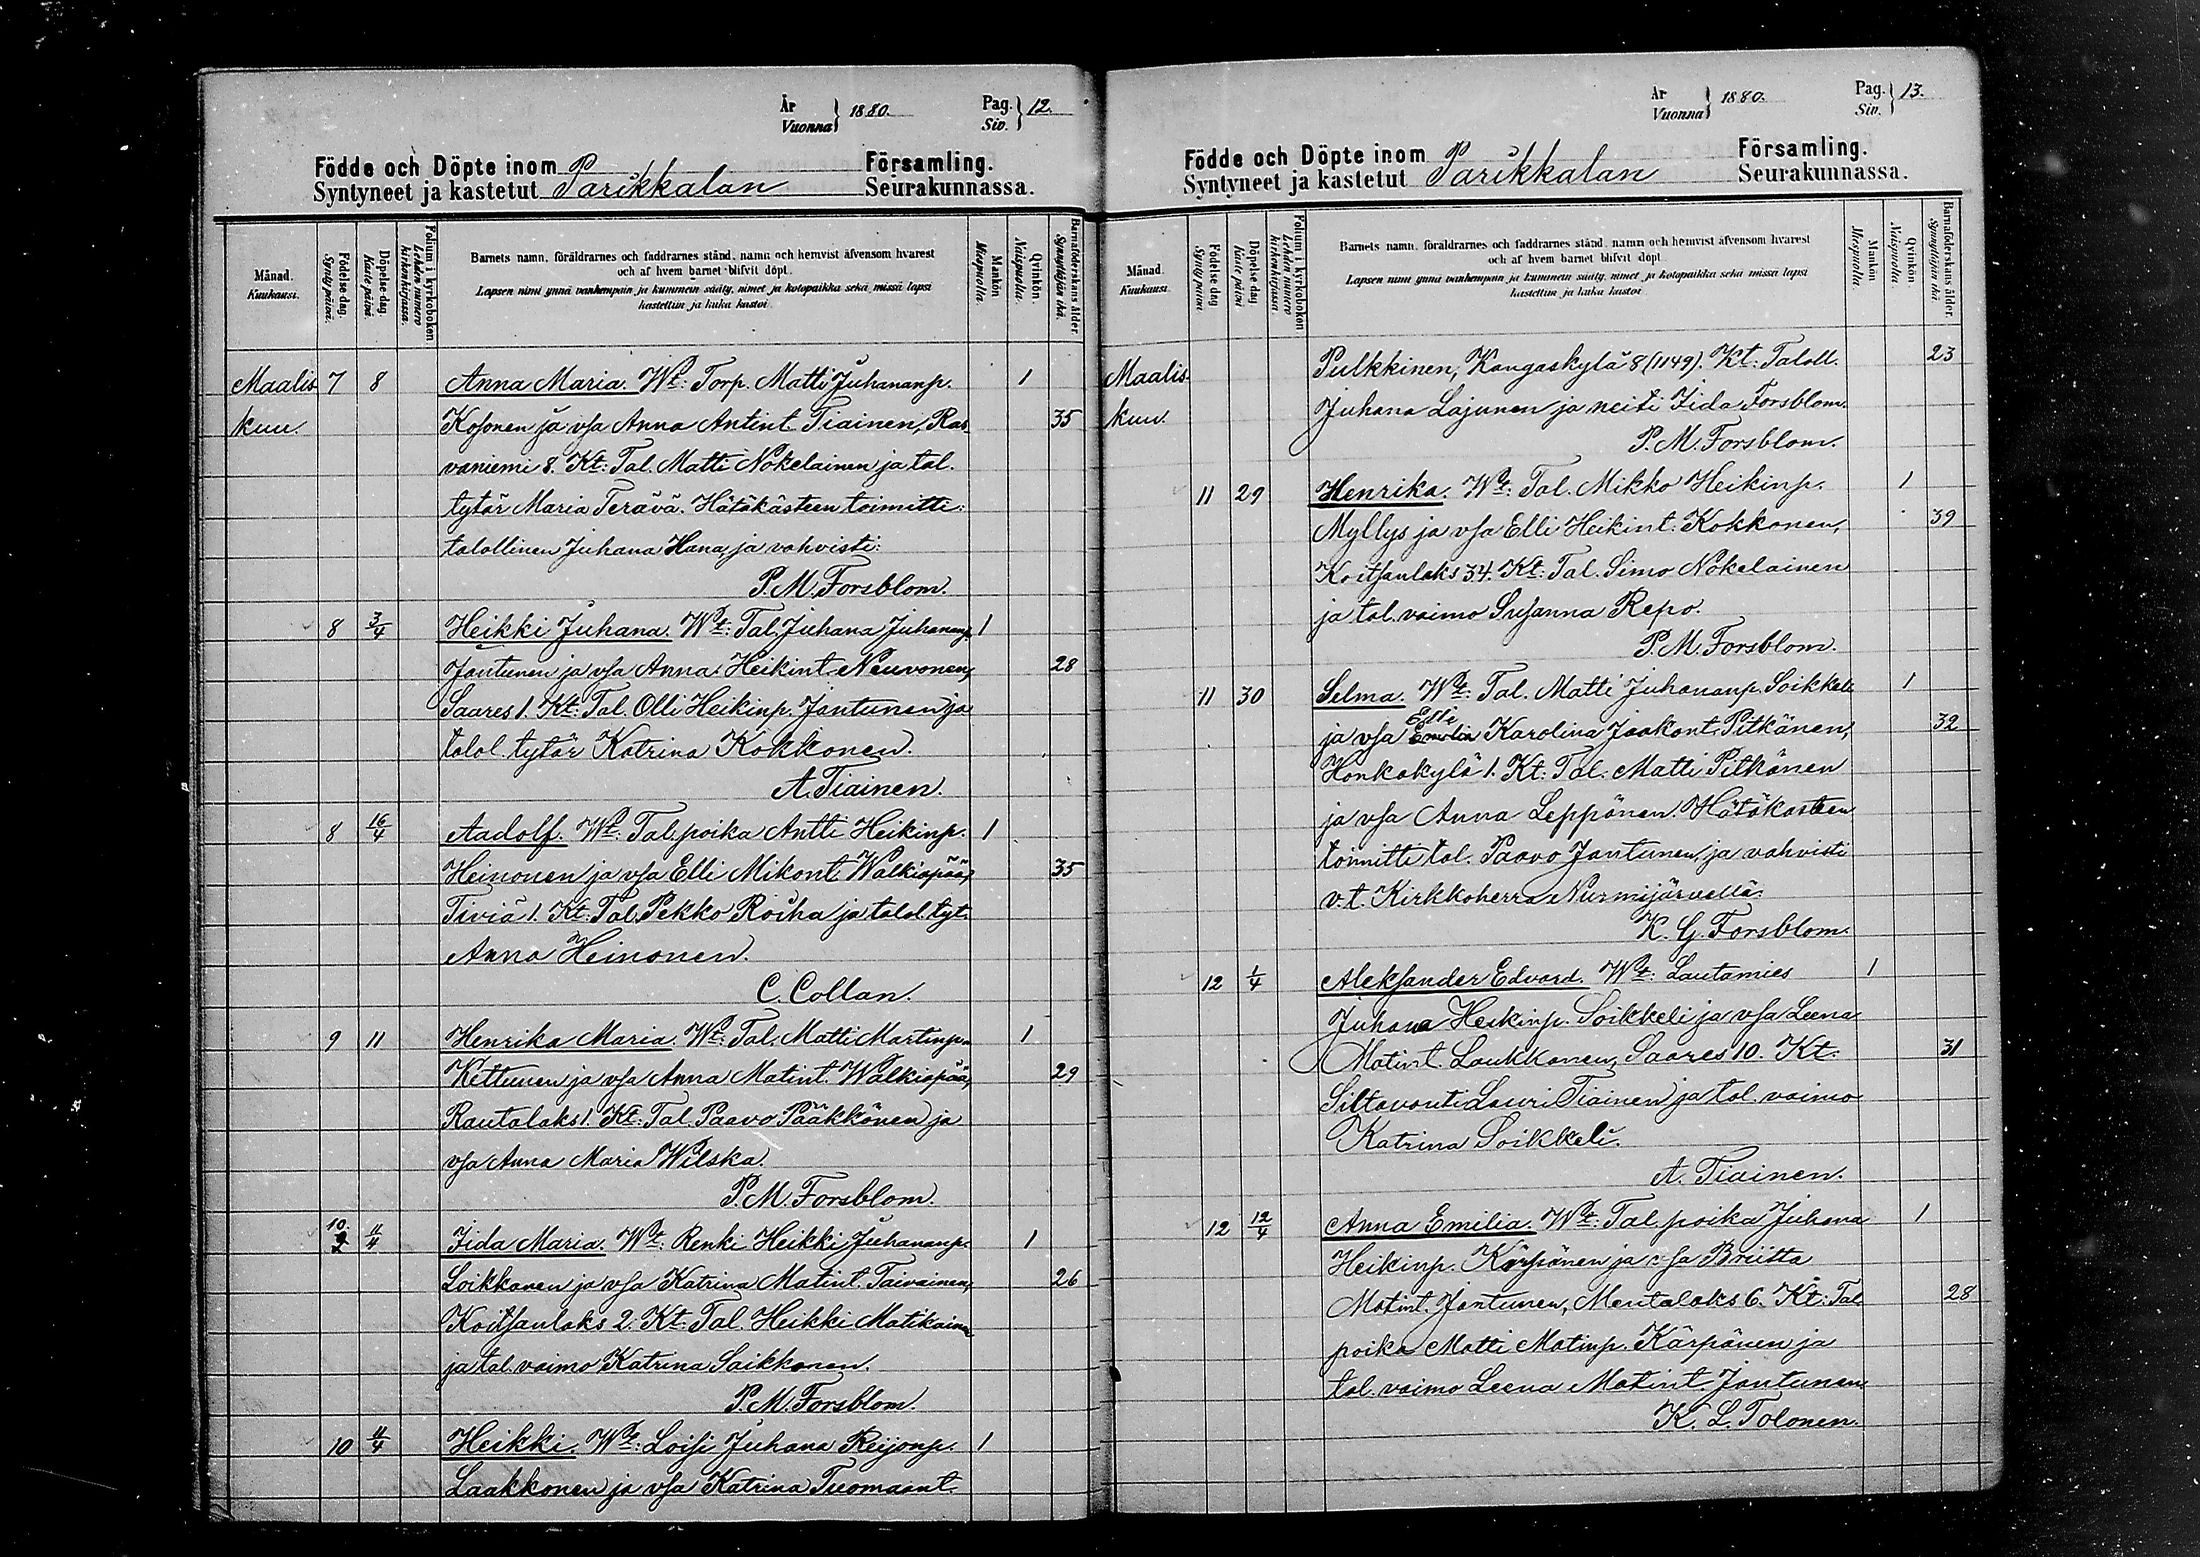 År
Vuonna } 1880.
Pag.
Siv. } 12.
Födde och Döpte inom
Syntyneet ja kastetut Parikkalan
Församling.
Seurakunnassa.
Månad.
Kuukausi.
Födelse dag.
Synty päivä.
Döpelse dag.
Kaste päivä.
Folium i kyrkoboken
Lehden numero kirkonkirjassa.
Barnets namn, föräldrarnes och faddrarnes stånd, namn och hemvist äfvensom hvarest
och af hvem barnet blifvit döpt.
Lapsen nimi ynnä vanhempain ja kummein sääty, nimet ja kotopaikka sekä missä lapsi
kastettiin ja kuka kastoi.
Mankön
Miespuolia.
Qvinkön
Naispuolia.
Barnaföderskans ålder.
Synnyttäjän ikä.
Maalis 7 8 Anna Maria. Wt: Torp. Matti Juhananp. 1
kuu. Kosonen ja vsa Anna Antint. Tiainen, Ras 35
vaniemi 8. Kt: Tal. Matti Nokelainen ja tal.
tytär Maria Terävä. Hätäkästeen toimitti:
talollinen Juhana Hana, ja vahvisti:
P. M. Forsblom.
8 3/4 Heikki Juhana. Wt: Tal. Juhana Juhananp. 1
Jantunen ja vsa Anna Heikint. Neuvonen, 28
Saares 1. Kt: Tal. Olli Heikinp. Jantunen ja
talol. tytär Katrina Kokkonen.
A. Tiainen.
8 16/4 Aadolf. Wt: Tal. poika Antti Heikinp. 1
Heinonen ja vsa Elli Mikont. Walkiapää, 35
Tiviä 1. Kt: Tal. Pekko Roiha ja talol. tyt.
Anna Heinonen.
C. Collan.
9 11 Henrika Maria. Wt: Tal. Matti Martinp. 1
Kettunen ja vsa Anna Matint. Walkiapää, 29
Rautalaks 1. Kt: Tal. Paavo Pääkkönen ja
vsa Anna Maria Wilska.
P. M. Forsblom.
10. 4/4 Iida Maria. Wt: Renki Heikki Juhananp. 1
Loikkanen ja vsa Katrina Matint. Taivainen, 26
Koitsanlaks 2. Kt: Tal. Heikki Matikainen
ja tal. vaimo Katrina Saikkonen.
P. M. Forsblom.
10 4/4 Heikki. Wt: Loisi Juhana Reijonp. 1
Laakkonen ja vsa Katrina Tuomaant.
År
Vuonna } 1880.
Pag.
Siv. } 13.
Födde och Döpte inom
Syntyneet ja kastetut Parikkalan
Församling.
Seurakunnassa.
Månad.
Kuukausi.
Födelse dag
Synty päivä
Döpelse dag
Kaste päivä
Folium i kyrkoboken
Lehden numero kirkonkirjassa
Barnets namn, föräldrarnes och faddrarnes stånd, namn och hemvist äfvensom hvarest
och af hvem barnet blifvit döpt.
Lapsen nimi ynnä vanhempain ja kummein sääty, nimet ja kotopaikka sekä missä lapsi
kastettiin ja kuka kastoi
Mankön
Miespuolia.
Qvinkön
Naispuolia.
Barnaföderskans ålder.
Synnyttäjän ikä.
Maalis Pulkkinen, Kangaskylä 8 (1149). Kt: Taloll. 23
kuu. Juhana Lajunen ja neiti Iida Forsblom.
P. M. Forsblom.
11 29 Henrika. Wt: Tal. Mikko Heikinp. 1
Myllys ja vsa Elli Heikint. Kokkonen, 39
Koitsanlaks 34. Kt: Tal. Simo Nokelainen
ja tal. vaimo Susanna Repo.
P. M. Forsblom.
11 30 Selma. Wt: Tal. Matti Juhananp. Soikkeli 1
Elli
ja vsa Emilia Karolina Jaakont. Pitkänen, 32
Honkakylä 1. Kt: Tal. Matti Pitkänen
ja vsa Anna Leppänen. Hätäkasteen
toimitti tal. Paavo Jantunen, ja vahvisti
v. t. Kirkkoherra Nurmijärvellä:
K. G. Forsblom.
12 1/4 Aleksander Edvard. Wt: Lautamies 1
Juhana Heikinp. Soikkeli ja vsa Leena
Matint. Laukkanen, Saares 10. Kt: 31
Siltavouti Lauri Tiainen ja tal. vaimo
Katrina Soikkeli.
A. Tiainen.
12 12/4 Anna Emilia. Wt: Tal. poika Juhana 1
Heikinp. Kärpänen ja vsa Briitta
Matint. Jantunen, Mentalaks 6. Kt: Tal. 28
poika Matti Matinp. Kärpänen ja
tal. vaimo Leena Matint. Jantunen
K. L. Tolonen.